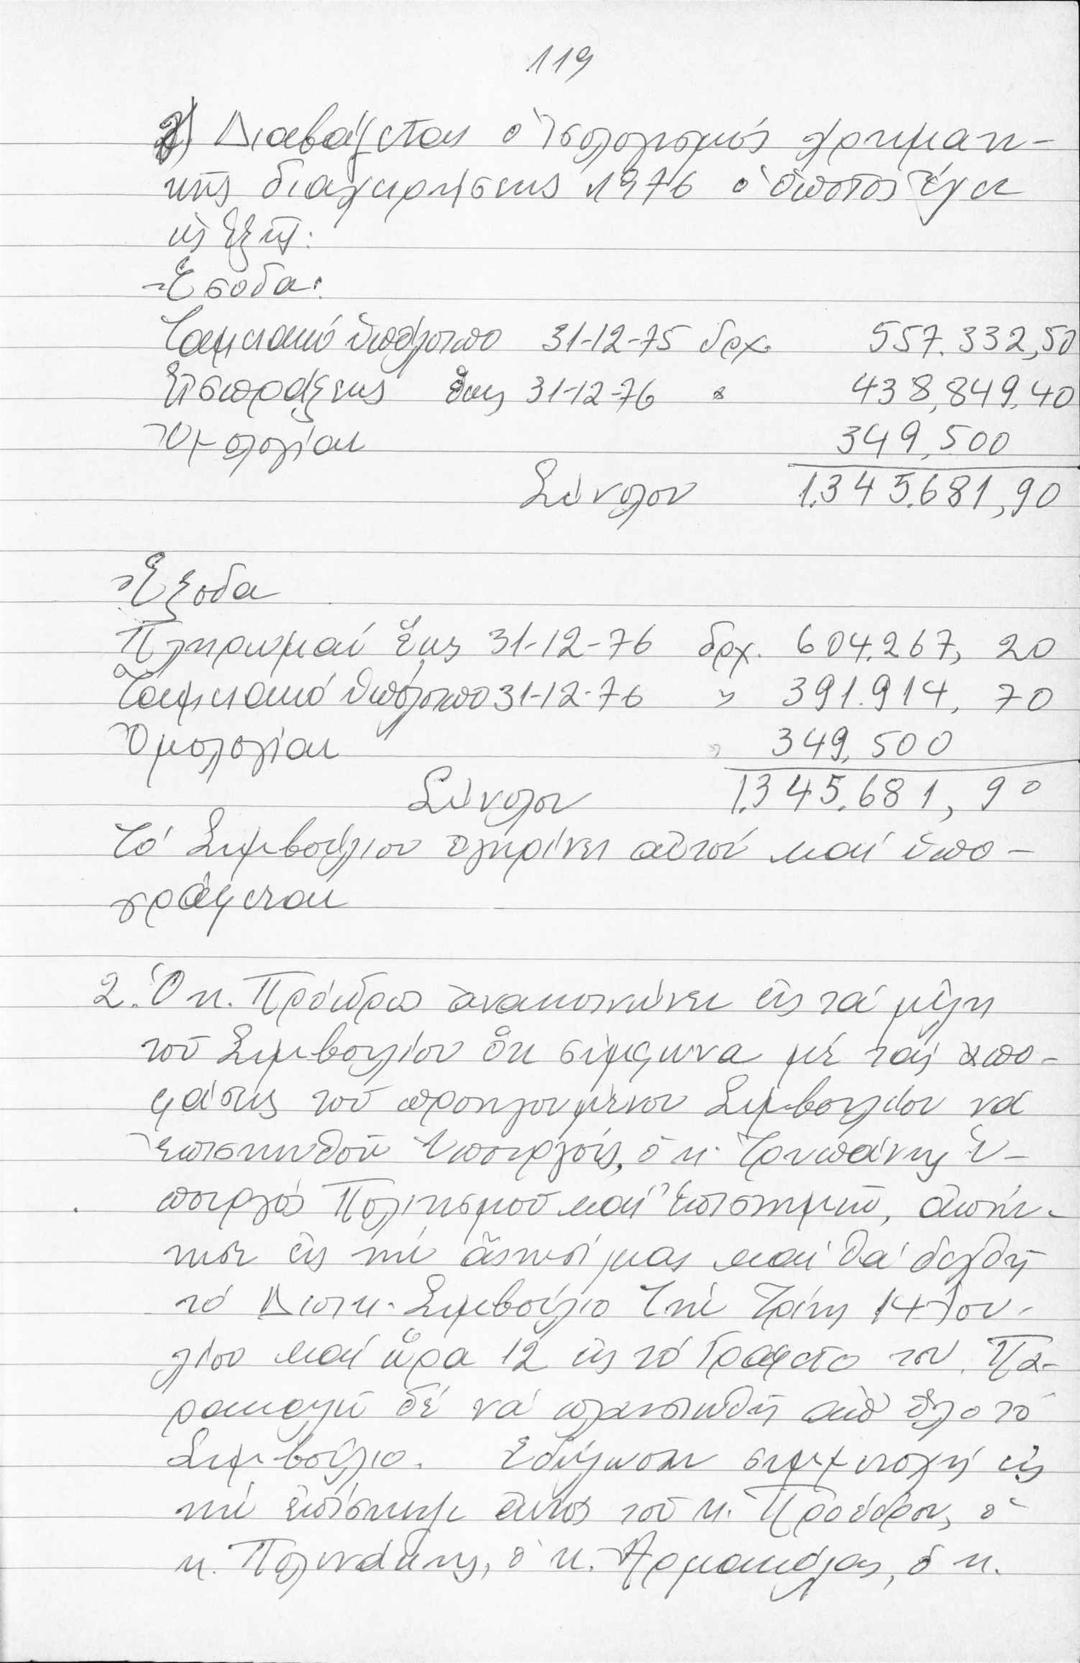 119
γ) Διαβάζεται ὁ ἰσολογισμός χρηματι-
κῆς διαχειρήσεως 1976 ὁ ὁποῖος ἔχει
ὡς ἑξῆς:
Ἔσοδα:
Ταμειακό ὑπόλοιπο 31-12-75 δρχ. 557.332,50
Εἰσπράξεις ἕως 31-12-76 " 438,849.40
Ὁμολογίαι 349,500
Σύνολον 1.345.681,90
Ἔξοδα
Πληρωμαί ἕως 31-12-76 δρχ. 604.267, 20
Ταμειακό ὑπόλοιπο 31-12-76 " 391.914, 70
Ὁμολογίαι " 349,500
Σύνολον 1.345.681, 90
Τό Συμβούλιον ἐγκρίνει αὐτόν καί ὑπο-
γράφεται
2. Ὁ κ. Πρόεδρος ἀνακοινώνει εἰς τά μέλη
τοῦ Συμβουλίου ὅτι σύμφωνα μέ τάς ἀπο-
φάσεις τοῦ προηγουμένου Συμβουλίου νά
ἐπισκεφθοῦν Ὑπουργούς, ὁ κ. Τρυπάνης Ὑ-
πουργός Πολιτισμοῦ καί Ἐπιστημῶν, ἀπήν-
τησε εἰς τήν αἴτησί μας καί θά δεχθῆ
τό Διοικ. Συμβούλιο τήν Τρίτη 14 Ἰου-
λίου καί ὥρα 12 εἰς τό Γραφεῖο του. Πα-
ρακαλεῖ δέ νά πλαισιωθῆ ἀπό ὅλο τό
Συμβούλιο. Ἐδήλωσαν συμμετοχή εἰς
τήν ἐπίσκεψι ἐκτός τοῦ κ. Προέδρου, ὁ
κ. Πολυδάκης, ὁ κ. Ἀρμακόλας, ὁ κ.